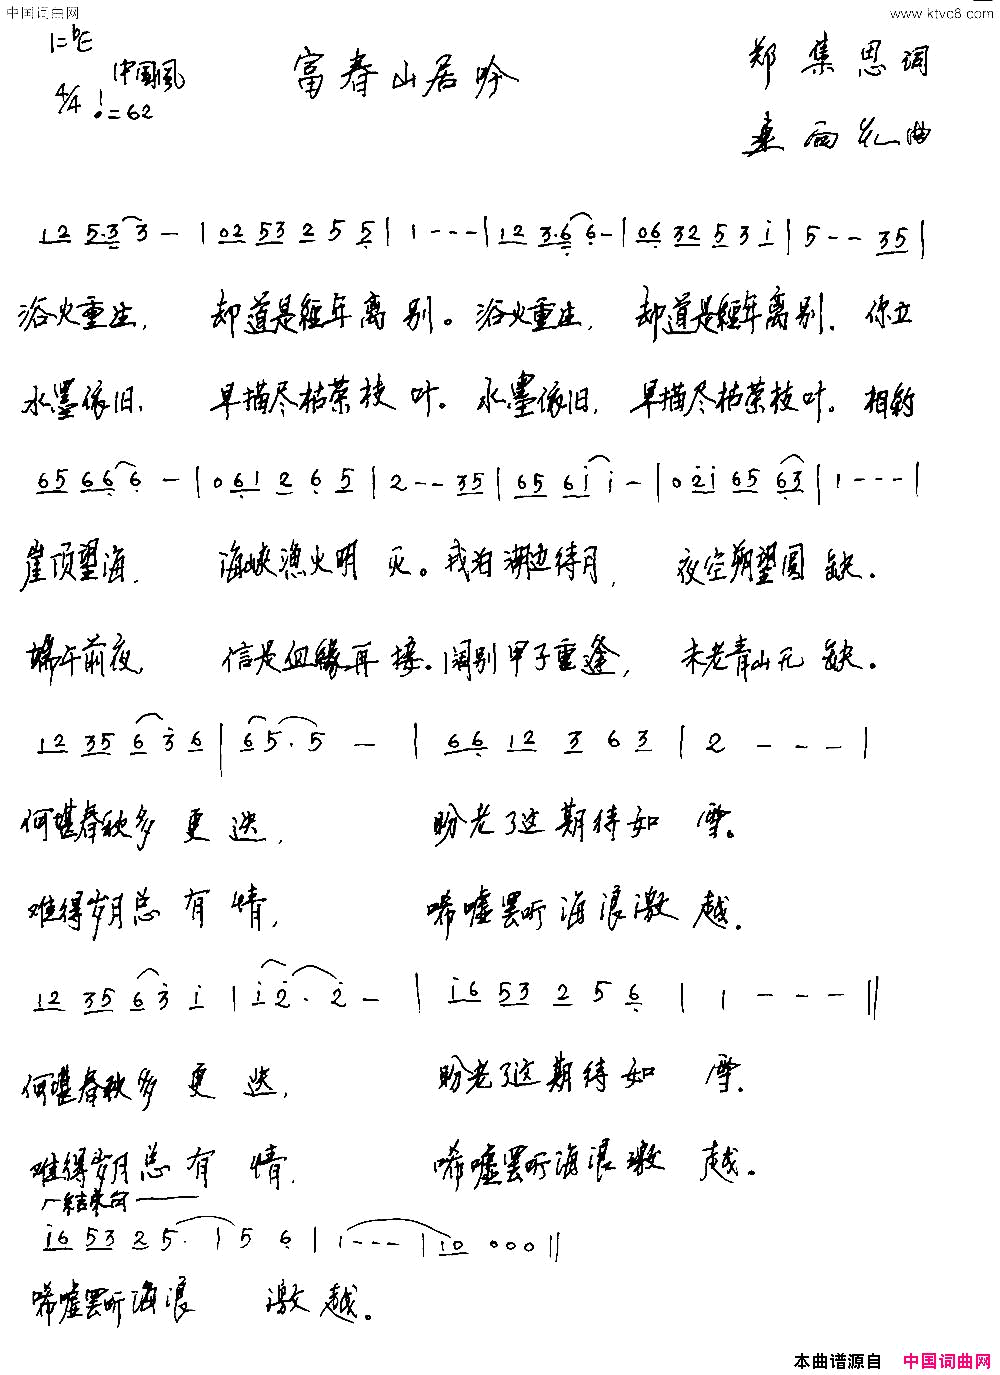 中国词曲网 www.ktvc8.com
1=bE
中国风
4/4 ♩=62
富春山居吟
郑集恩词
桑雨花曲
12 5·3 3 - | 02 53 2 5 5 | 1 - - - | 12 3·6 6 - | 06 32 5 3 i | 5 - - 35 |
浴火重生, 却道是經年离别。浴火重生, 却道是經年离别. 你立
水墨依旧, 早描尽枯荣枝叶。水墨依旧, 早描尽枯荣枝叶。相約
65 66 6 - | 0 61 2 6 5 | 2 - - 35 | 65 6i i - | 0 2i 65 63 | 1 - - - |
崖顶望海, 海峡漁火明灭。我泊湖边待月, 夜空朔望圆缺.
端午前夜, 信是血緣再接. 阔别甲子重逢, 未老青山无缺.
12 35 6 3 6 | 65· 5 - | 66 12 3 6 3 | 2 - - - |
何堪春秋多更迭, 盼老了这期待如雪.
难得岁月总有情, 唏嘘罢听海浪激越.
12 35 6 3 i | i2· 2 - | i6 53 2 5 6 | 1 - - - ||
何堪春秋多更迭, 盼老了这期待如雪.
难得岁月总有情. 唏嘘罢听海浪激越.
结束句
i6 53 2 5· | 5 6 | 1 - - - | 10 0 0 0 ||
唏嘘罢听海浪激越.
本曲谱源自 中国词曲网